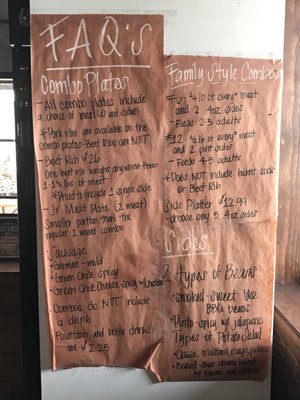 FAQ's
Combo Plates
- All combo plates include
a choice of meat(s) and side(s)
* Pork ribs are available on the
combo plates - Beef Ribs are NOT
- Beef Rib $26
One beef rib weighs anywhere from
lbs of meat
* Priced to include 1 single side
- Jr Meat Plate (2 meat)
Smaller portion than the
regular 2 meat combo
Sausage
- German - mild
- Green Chile - spicy
- Green Chile Cheese - spicy
- Combos do NOT include
a drink
Fountain and bottle drinks
are $2.25
Family Style Combos
#6 - 1/4 lb of every* meat
and 2 4oz sides
- Feeds 2-3 adults
#12 - 1/2 lb of every* meat
and 2 pint sides
- Feeds 4-5 adults
* Does NOT include burnt ends
or Beef Rib
Side Platter $12.99
- choose any 5 4oz sides
Sides
2 Types of Beans
- Smoked - sweet like
BBQ beans
- Pinto - spicy w/ jalapeno
Types of Potato Salad
- Classic mustard, mayo, pickles
- Baked - sour cream based
w/ bacon and cheese